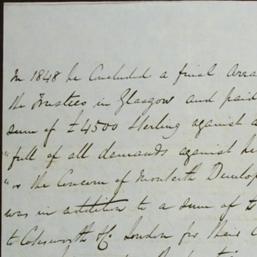 In 1848 he Concluded a final Arra
the Trustees in Glasgow and paid
sum of £4500 Sterling against a
"full of all demands against he
"or the Concern of Monteith Dunlop
was in addition to a sum of £
to London for their